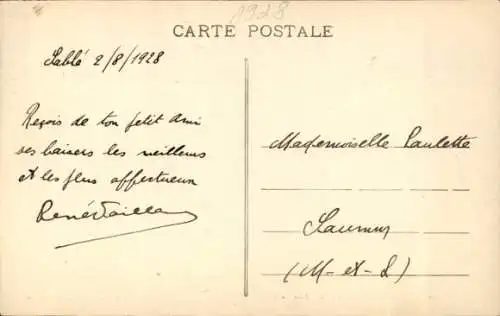 1928
CARTE POSTALE
Sablé 2/8/1928
Reçois de ton petit ami
ses baisers les meilleurs
et les plus affectueux
René
Mademoiselle Paulette
Saumur
(M-et-L)